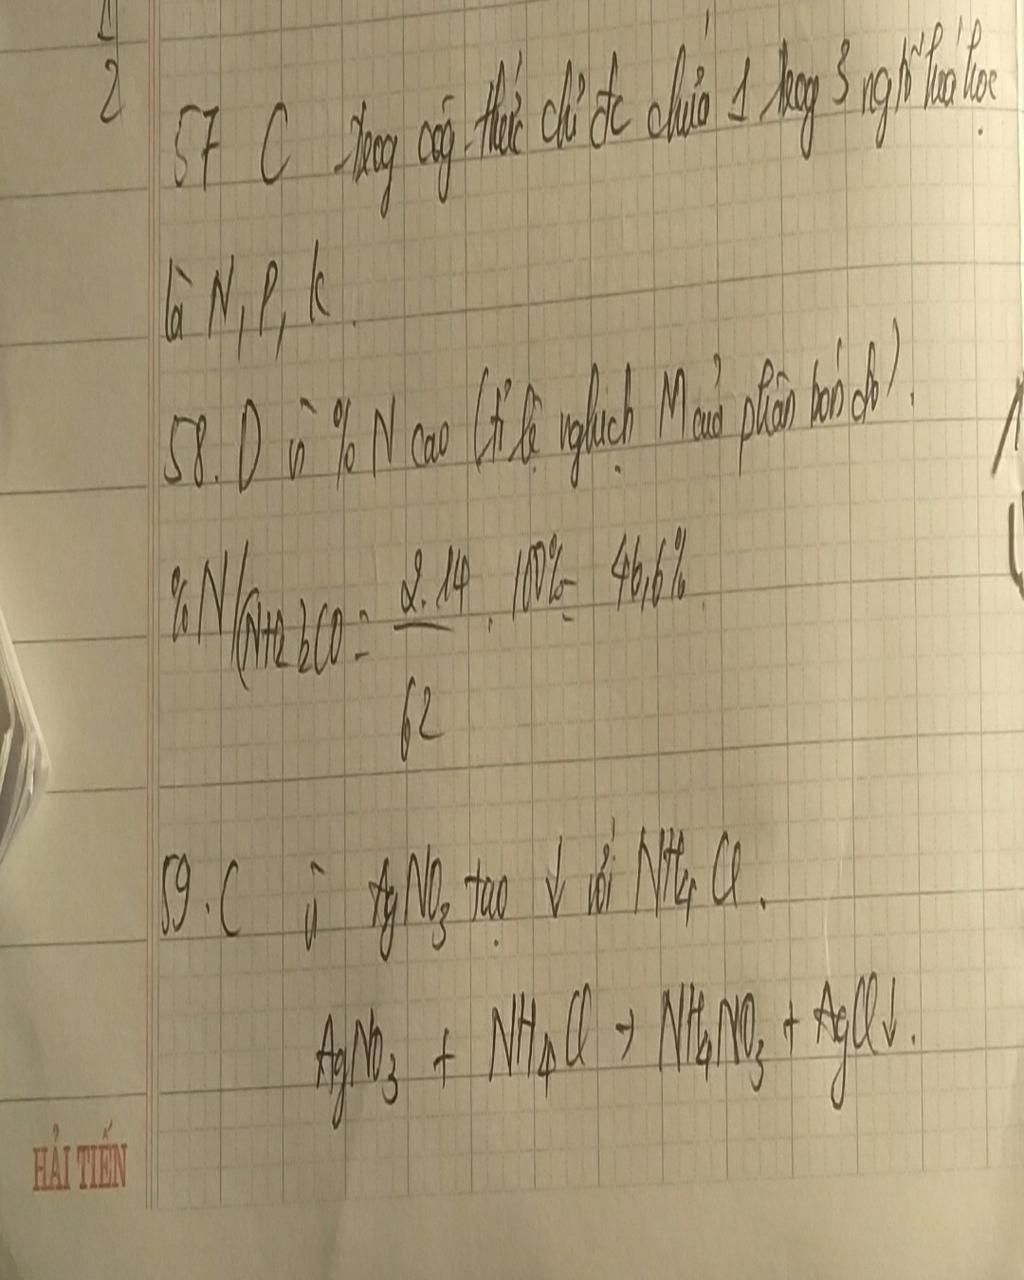 1
2
57 C trog côg thức chỉ đc chứa 1 trog 3 ngtố hoá học
là N, P, K.
58. D vì % N cao (tỉ lệ nghịch M của phân bón đó).
%N/(NH2)2CO = 2.14 / 62 . 100% = 46,6%
59. C vì AgNO3 tạo ↓ với NH4Cl.
AgNO3 + NH4Cl → NH4NO3 + AgCl↓.
HẢI TIẾN